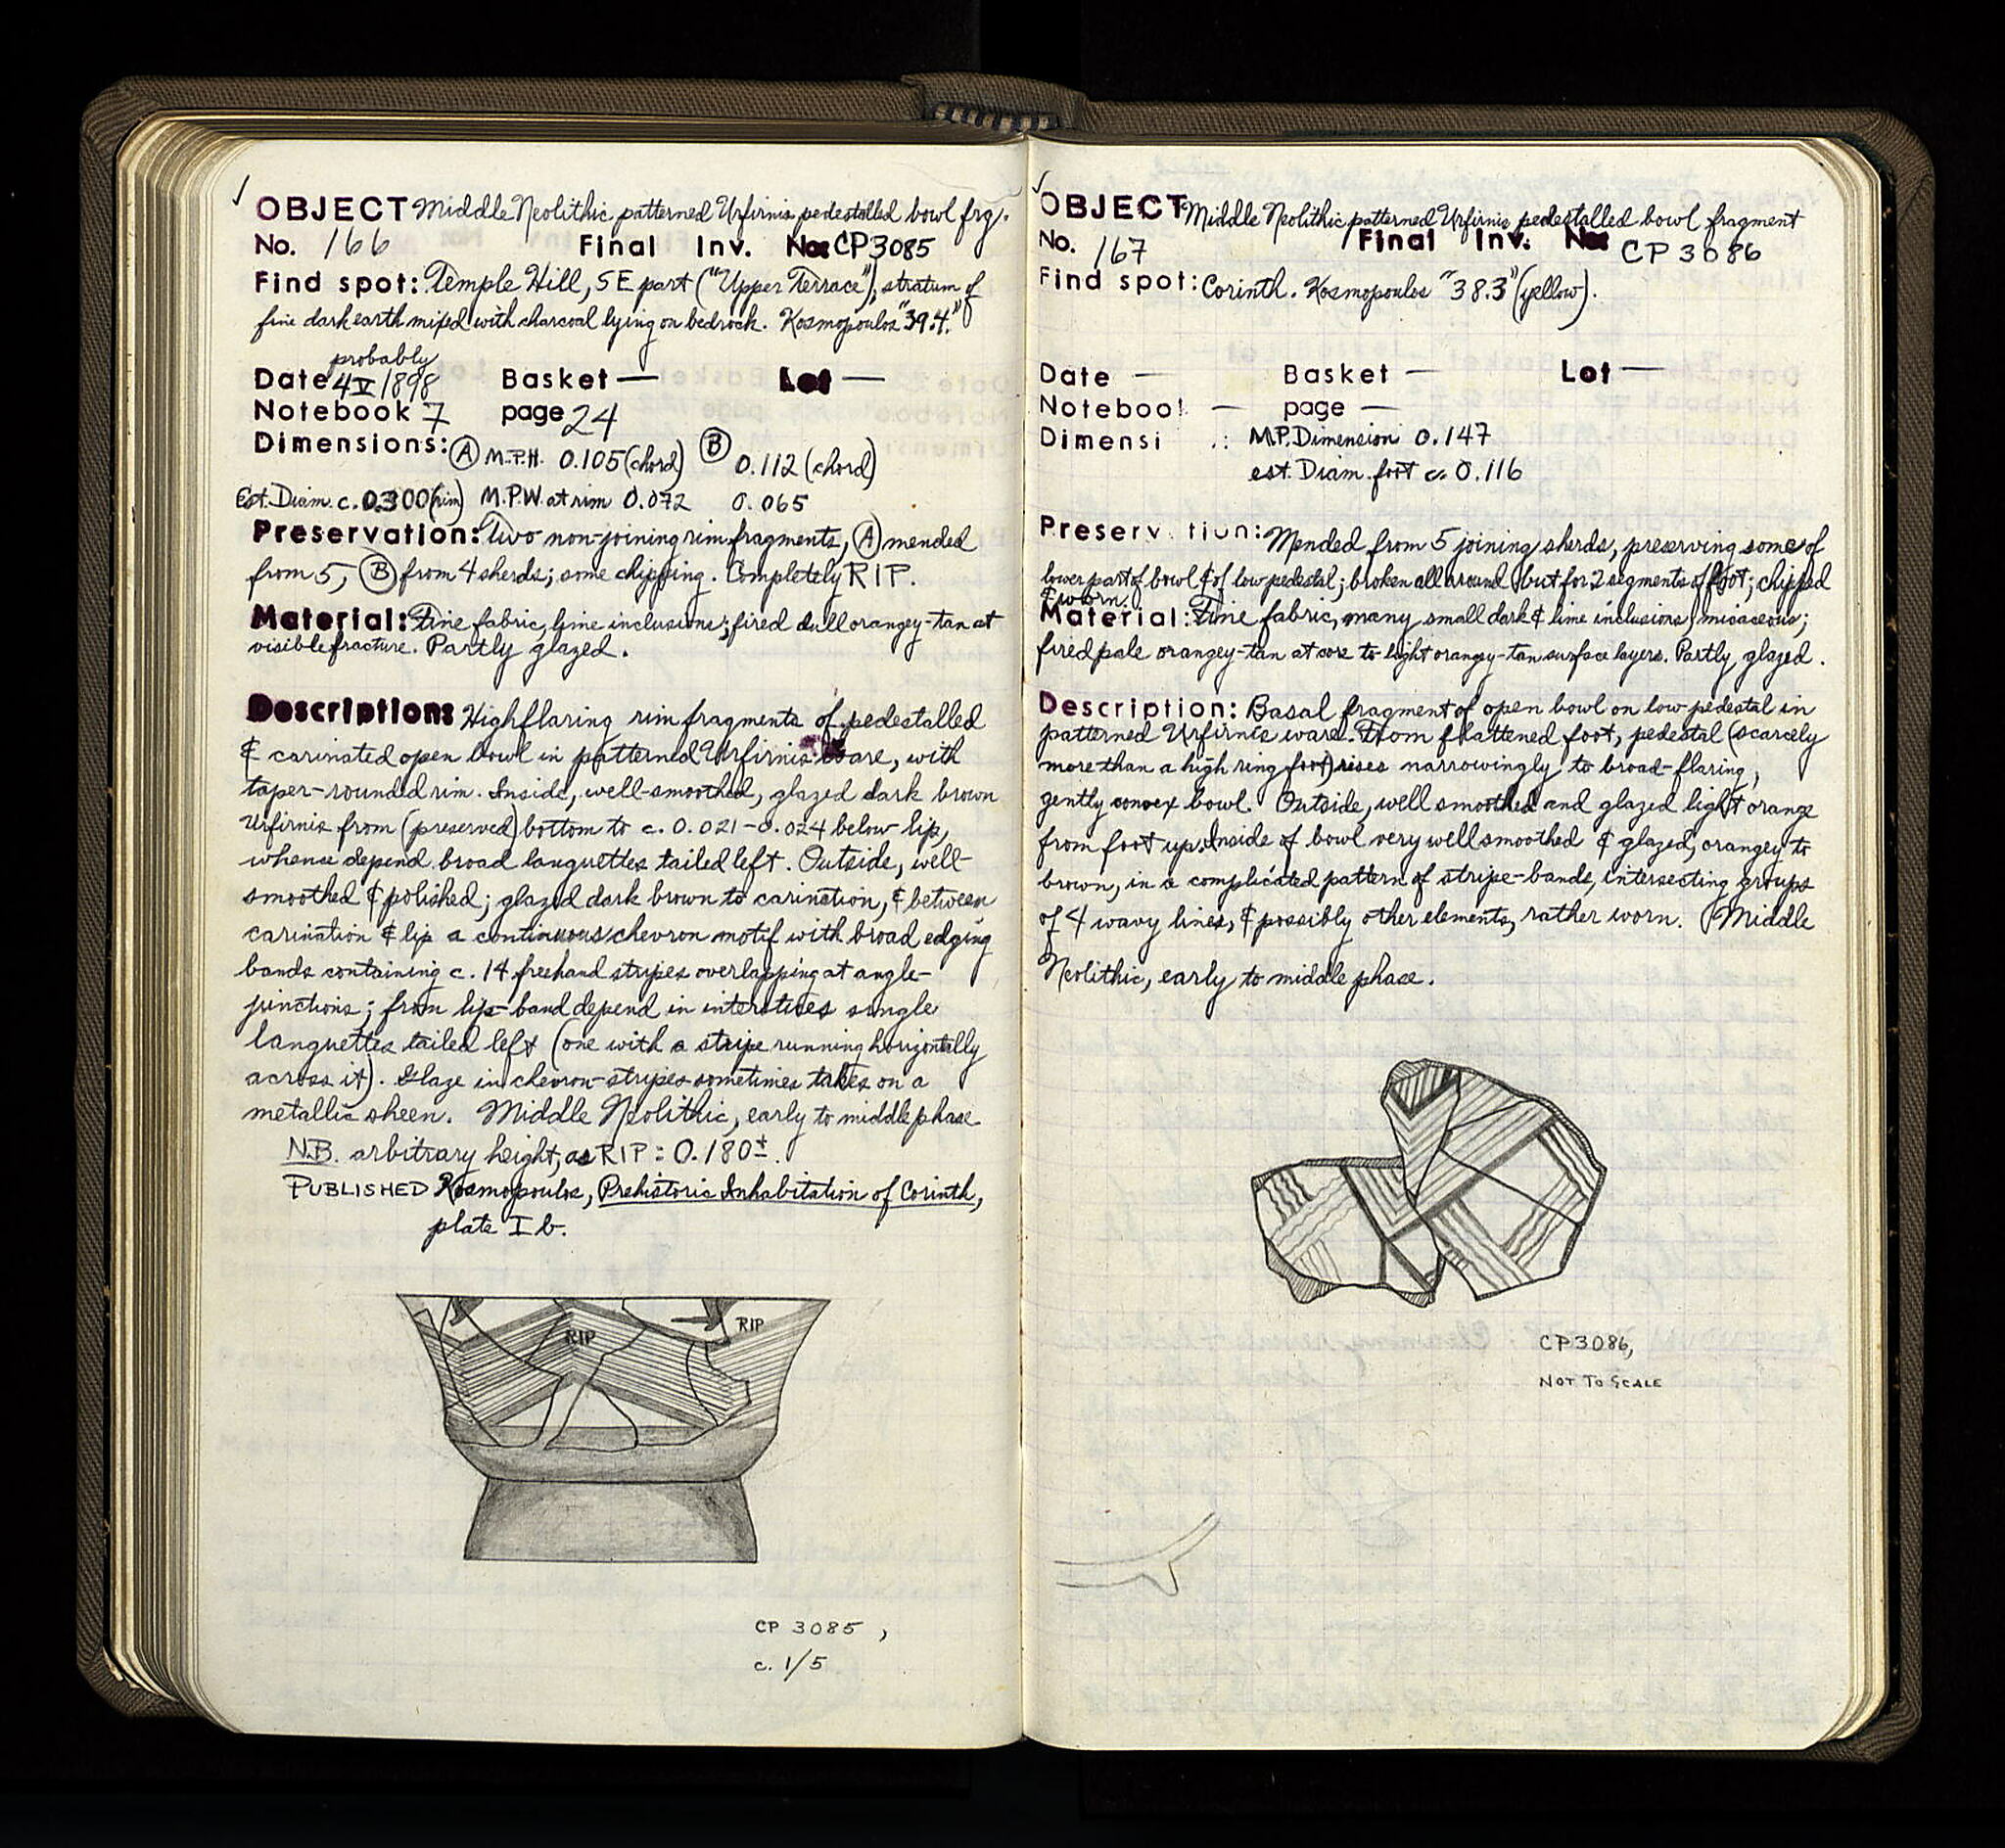 ✓ OBJECT Middle Neolithic patterned Urfirnis pedestalled bowl frg.
No. 166 Final Inv. No: CP3085
Find spot: Temple Hill, SE part ("Upper Terrace"), stratum of
fine dark earth mixed with charcoal lying on bedrock. Kosmopoulos "39.4."
probably
Date 4 V 1898 Basket — Lot —
Notebook 7 page 24
Dimensions: Ⓐ M.P.H. 0.105 (chord) Ⓑ 0.112 (chord)
Est. Diam. c. 0.300 (rim) M.P.W. at rim 0.072 0.065
Preservation: Two non-joining rim fragments, Ⓐ mended
from 5, Ⓑ from 4 sherds; some chipping. Completely RIP.
Material: Fine fabric, lime inclusions; fired dull orangey-tan at
visible fracture. Partly glazed.
Description: High flaring rim fragments of pedestalled
& carinated open bowl in patterned Urfirnis ware, with
taper-rounded rim. Inside, well-smoothed, glazed dark brown
Urfirnis from (preserved) bottom to c. 0.021-0.024 below lip,
whence depend broad languettes tailed left. Outside, well-
smoothed & polished; glazed dark brown to carination, & between
carination & lip a continuous chevron motif with broad edging
bands containing c. 14 freehand stripes overlapping at angle-
junctions; from lip-band depend in interstices single
languettes tailed left (one with a stripe running horizontally
across it). Glaze in chevron-stripes sometimes takes on a
metallic sheen. Middle Neolithic, early to middle phase
N.B. arbitrary height, as RIP: 0.180±.
PUBLISHED Kosmopoulos, Prehistoric Inhabitation of Corinth,
plate I b.
RIP
RIP
CP 3085,
c. 1/5
✓ OBJECT Middle Neolithic patterned Urfirnis pedestalled bowl fragment
No. 167 Final Inv. No: CP 3086
Find spot: Corinth. Kosmopoulos "38.3" (yellow).
Date — Basket — Lot —
Noteboo — page —
Dimensi .: M.P. Dimension 0.147
est. Diam. foot c. 0.116
Preserv tiun: Mended from 5 joining sherds, preserving some of
lower part of bowl & of low pedestal; broken all around but for 2 segments of foot; chipped
& worn.
Material: Fine fabric, many small dark & lime inclusions, micaceous;
fired pale orangey-tan at core to light orangey-tan surface layers. Partly glazed.
Description: Basal fragment of open bowl on low pedestal in
patterned Urfirnis ware. From flattened foot, pedestal (scarcely
more than a high ring foot) rises narrowingly to broad-flaring,
gently convex bowl. Outside, well smoothed and glazed light orange
from foot up. Inside of bowl very well smoothed & glazed, orangey to
brown, in a complicated pattern of stripe-bands, intersecting groups
of 4 wavy lines, & possibly other elements, rather worn. Middle
Neolithic, early to middle phase.
CP3086,
NOT TO SCALE